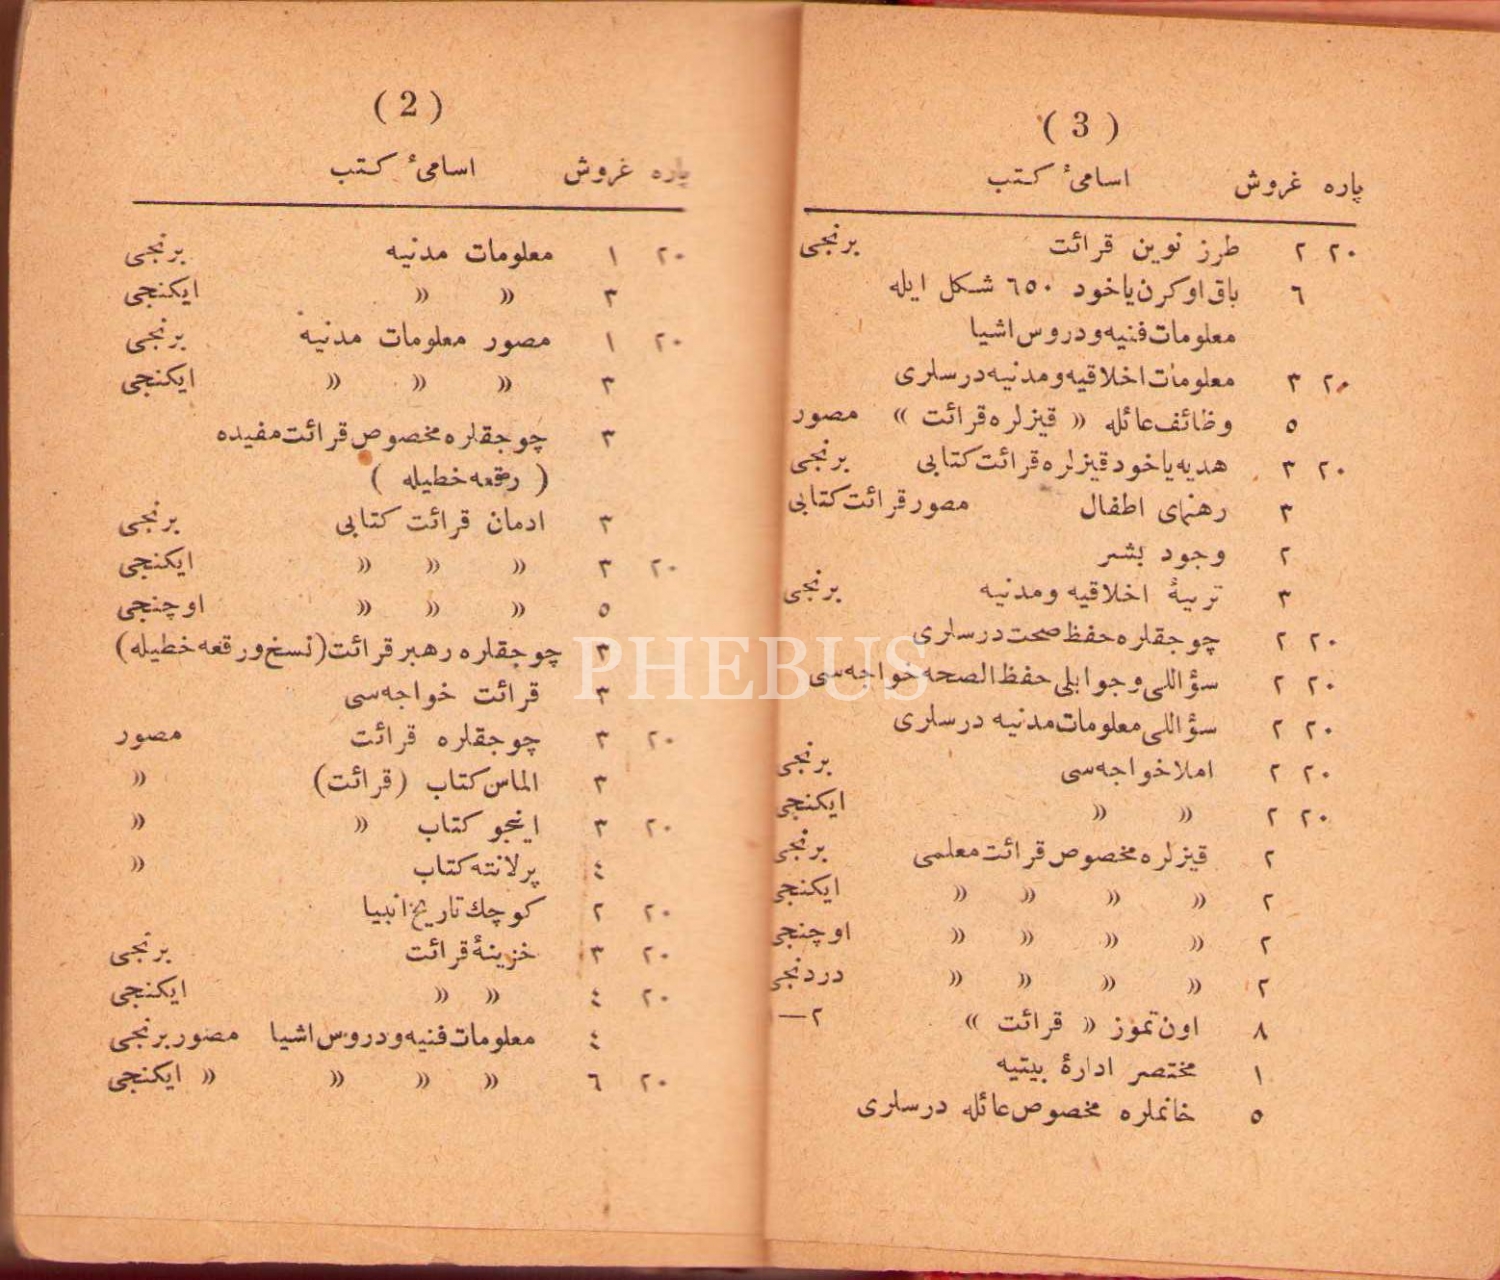 ( 2 )
پاره غروش اسامیٔ کتب
٢٠ ١ معلومات مدنیه برنجی
٣ » » ایکنجی
٢٠ ١ مصور معلومات مدنیه برنجی
٣ » » » ایکنجی
٣ چوجقلره مخصوص قرائت مفیده
( رقعه خطیله )
٣ ادمان قرائت کتابی برنجی
٢٠ ٣ » » » ایکنجی
٥ » » » اوچنجی
٣ چوجقلره رهبر قرائت (نسخ و رقعه خطیله)
٣ قرائت خواجه‌سی
٢٠ ٣ چوجقلره قرائت مصور
٣ الماس کتاب (قرائت) »
٢٠ ٣ اینجو کتاب » »
٤ پرلانته کتاب »
٢٠ ٢ کوچك تاریخ انبیا
٢٠ ٣ خزینهٔ قرائت برنجی
٢٠ ٤ » » ایکنجی
٤ معلومات فنیه و دروس اشیا مصور برنجی
٢٠ ٦ » » » » ایکنجی
( 3 )
پاره غروش اسامیٔ کتب
٢٠ ٢ طرز نوین قرائت برنجی
٦ باق اوکرن یاخود ٦٥٠ شکل ایله
معلومات فنیه و دروس اشیا
٢٠ ٣ معلومات اخلاقیه و مدنیه درسلری
٥ وظائف عائله « قیزلره قرائت » مصور
٢٠ ٣ هدیه یاخود قیزلره قرائت کتابی برنجی
٣ رهنمای اطفال مصور قرائت کتابی
٢ وجود بشر
٣ تربیهٔ اخلاقیه و مدنیه برنجی
٢٠ ٢ چوجقلره حفظ صحت درسلری
٢٠ ٢ سؤاللی و جوابلی حفظ الصحه خواجه‌سی
٢٠ ٢ سؤاللی معلومات مدنیه درسلری
٢٠ ٢ املا خواجه‌سی برنجی
٢٠ ٢ » » ایکنجی
٢ قیزلره مخصوص قرائت معلمی برنجی
٢ » » » » ایکنجی
٢ » » » » اوچنجی
٢ » » » » دردنجی
٨ اون تموز « قرائت » ٢—
١ مختصر ادارهٔ بیتیه
٥ خانملره مخصوص عائله درسلری
PHEBUS